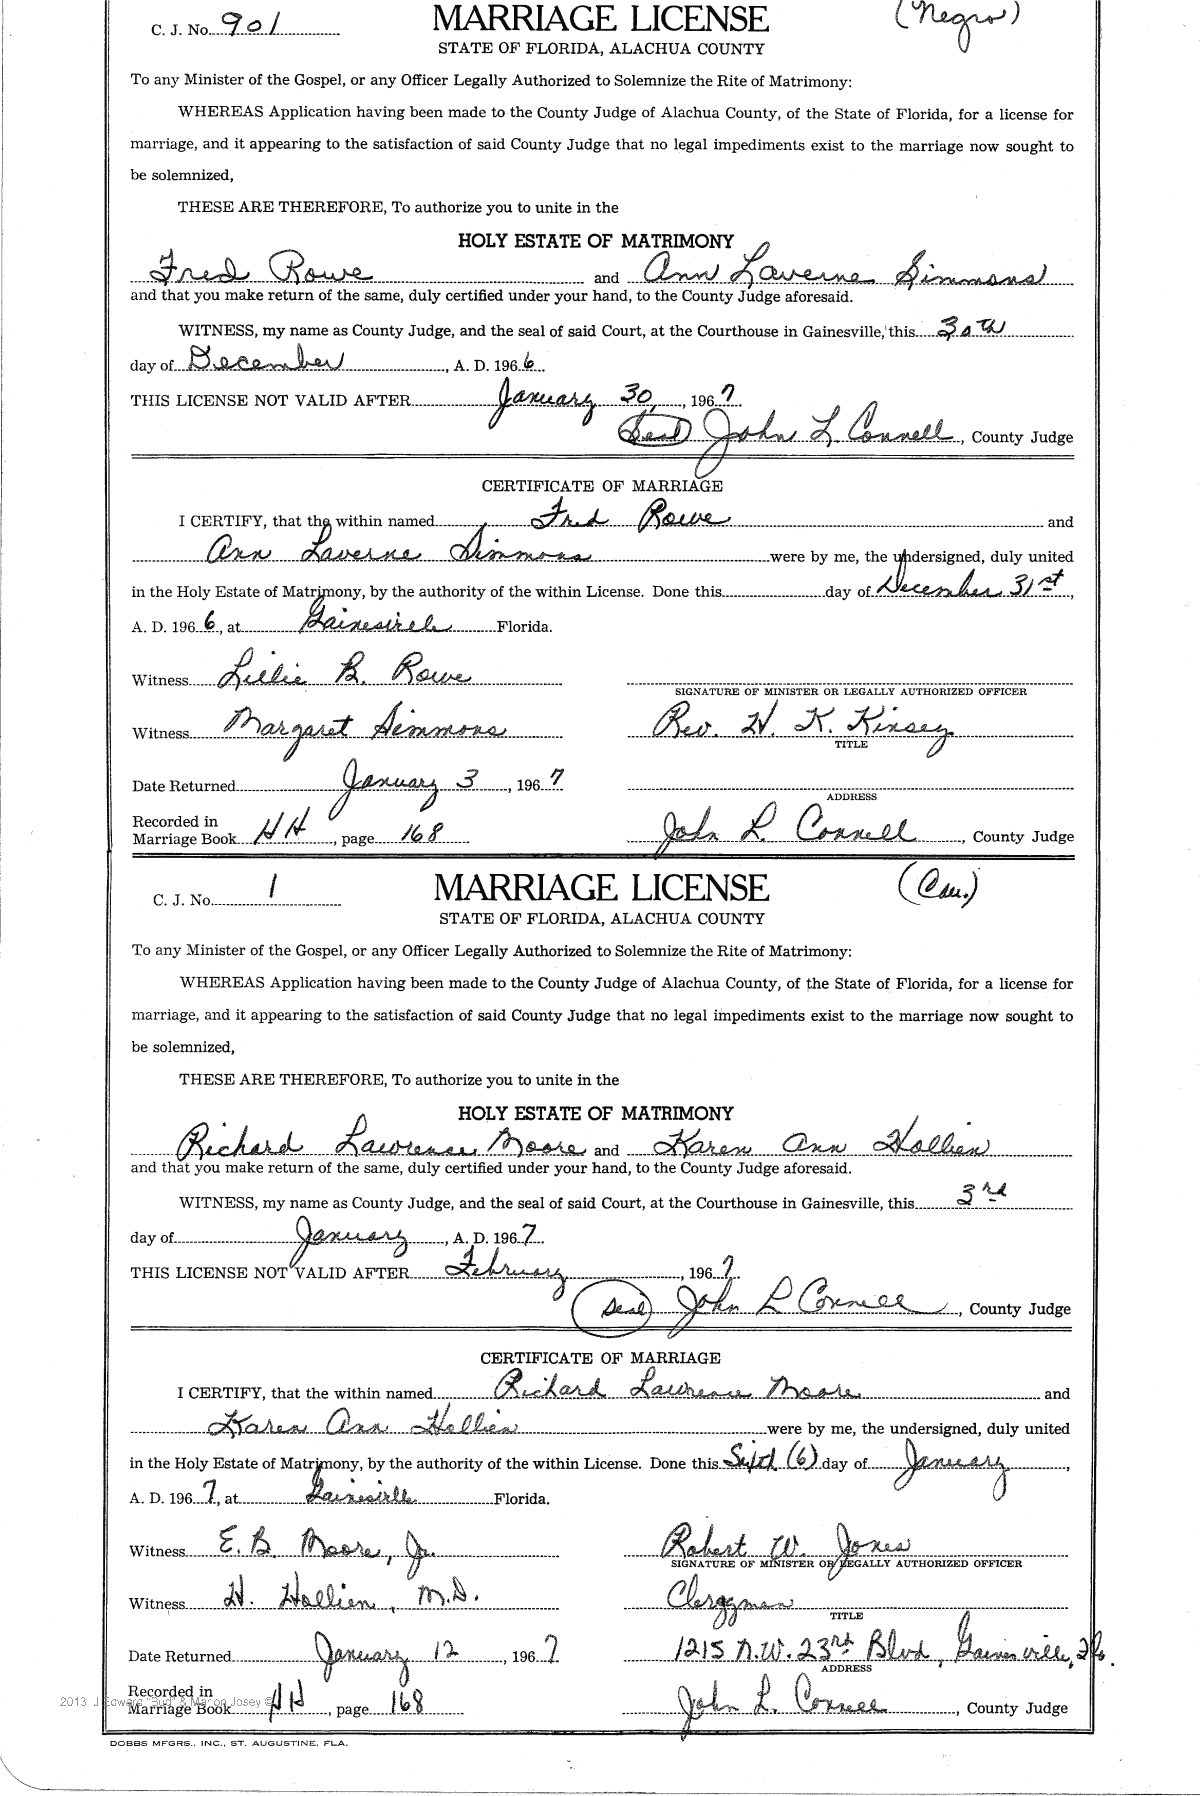 C. J. No. 901 MARRIAGE LICENSE (Negro)
STATE OF FLORIDA, ALACHUA COUNTY
To any Minister of the Gospel, or any Officer Legally Authorized to Solemnize the Rite of Matrimony:
WHEREAS Application having been made to the County Judge of Alachua County, of the State of Florida, for a license for
marriage, and it appearing to the satisfaction of said County Judge that no legal impediments exist to the marriage now sought to
be solemnized,
THESE ARE THEREFORE, To authorize you to unite in the
HOLY ESTATE OF MATRIMONY
Fred Rowe and Ann Laverne Simmons
and that you make return of the same, duly certified under your hand, to the County Judge aforesaid.
WITNESS, my name as County Judge, and the seal of said Court, at the Courthouse in Gainesville, this 30th
day of December, A. D. 1966
THIS LICENSE NOT VALID AFTER January 30, 1967
(Seal) John L. Connell, County Judge
CERTIFICATE OF MARRIAGE
I CERTIFY, that the within named Fred Rowe and
Ann Laverne Simmons were by me, the undersigned, duly united
in the Holy Estate of Matrimony, by the authority of the within License. Done this day of December 31st,
A. D. 1966, at Gainesville Florida.
Witness Lillie B. Rowe
SIGNATURE OF MINISTER OR LEGALLY AUTHORIZED OFFICER
Witness Margaret Simmons Rev. H. K. Kinsey
TITLE
Date Returned January 3, 1967
ADDRESS
Recorded in
Marriage Book HH, page 168 John L. Connell, County Judge
C. J. No. 1 MARRIAGE LICENSE (Cau.)
STATE OF FLORIDA, ALACHUA COUNTY
To any Minister of the Gospel, or any Officer Legally Authorized to Solemnize the Rite of Matrimony:
WHEREAS Application having been made to the County Judge of Alachua County, of the State of Florida, for a license for
marriage, and it appearing to the satisfaction of said County Judge that no legal impediments exist to the marriage now sought to
be solemnized,
THESE ARE THEREFORE, To authorize you to unite in the
HOLY ESTATE OF MATRIMONY
Richard Lawrence Moore and Karen Ann Hollien
and that you make return of the same, duly certified under your hand, to the County Judge aforesaid.
WITNESS, my name as County Judge, and the seal of said Court, at the Courthouse in Gainesville, this 3rd
day of January, A. D. 1967
THIS LICENSE NOT VALID AFTER February, 1967
(Seal) John L Connell, County Judge
CERTIFICATE OF MARRIAGE
I CERTIFY, that the within named Richard Lawrence Moore and
Karen Ann Hollien were by me, the undersigned, duly united
in the Holy Estate of Matrimony, by the authority of the within License. Done this Sixth (6) day of January,
A. D. 1967, at Gainesville Florida.
Witness E. B. Moore, Jr. Robert W. Jones
SIGNATURE OF MINISTER OR LEGALLY AUTHORIZED OFFICER
Witness H. Hollien, M.D. Clergyman
TITLE
Date Returned January 12, 1967 1215 N.W. 23rd Blvd, Gainesville, Fla.
ADDRESS
Recorded in
2013 J Edward "Bud" & Marion Josey ©
Marriage Book HH, page 168 John L. Connell, County Judge
DOBBS MFGRS., INC., ST. AUGUSTINE, FLA.